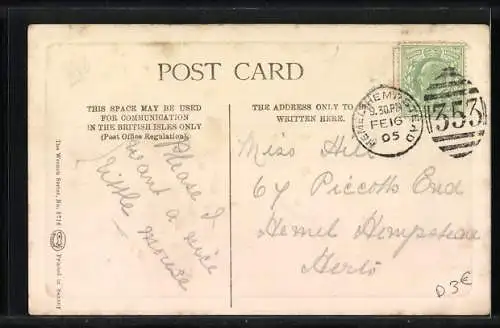 POST CARD
THIS SPACE MAY BE USED
FOR COMMUNICATION
IN THE BRITISH ISLES ONLY
(Post Office Regulation).
THE ADDRESS ONLY TO BE
WRITTEN HERE.
HEMEL HEMPSTEAD
9.30PM
FE 16
05
353
Please I
want a nice
little mouse
Miss Hill
67 Piccotts End
Hemel Hempstead
Herts
D 3€
The Wrench Series, No. 9716
Printed in Saxony